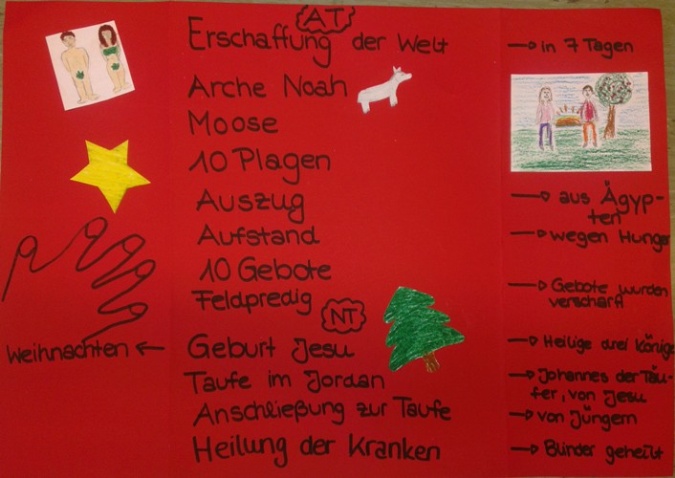 AT
Erschaffung der Welt → in 7 Tagen
Arche Noah
Moose
10 Plagen
Auszug → aus Ägyp-
ten
Aufstand → wegen Hunger
10 Gebote → Gebote wurden
verschärft
Feldpredig
NT
Weihnachten ← Geburt Jesu → Heilige drei Könige
Taufe im Jordan → Johannes der Täu-
fer, von Jesu
Anschließung zur Taufe → von Jüngern
Heilung der Kranken → Blinder geheilt